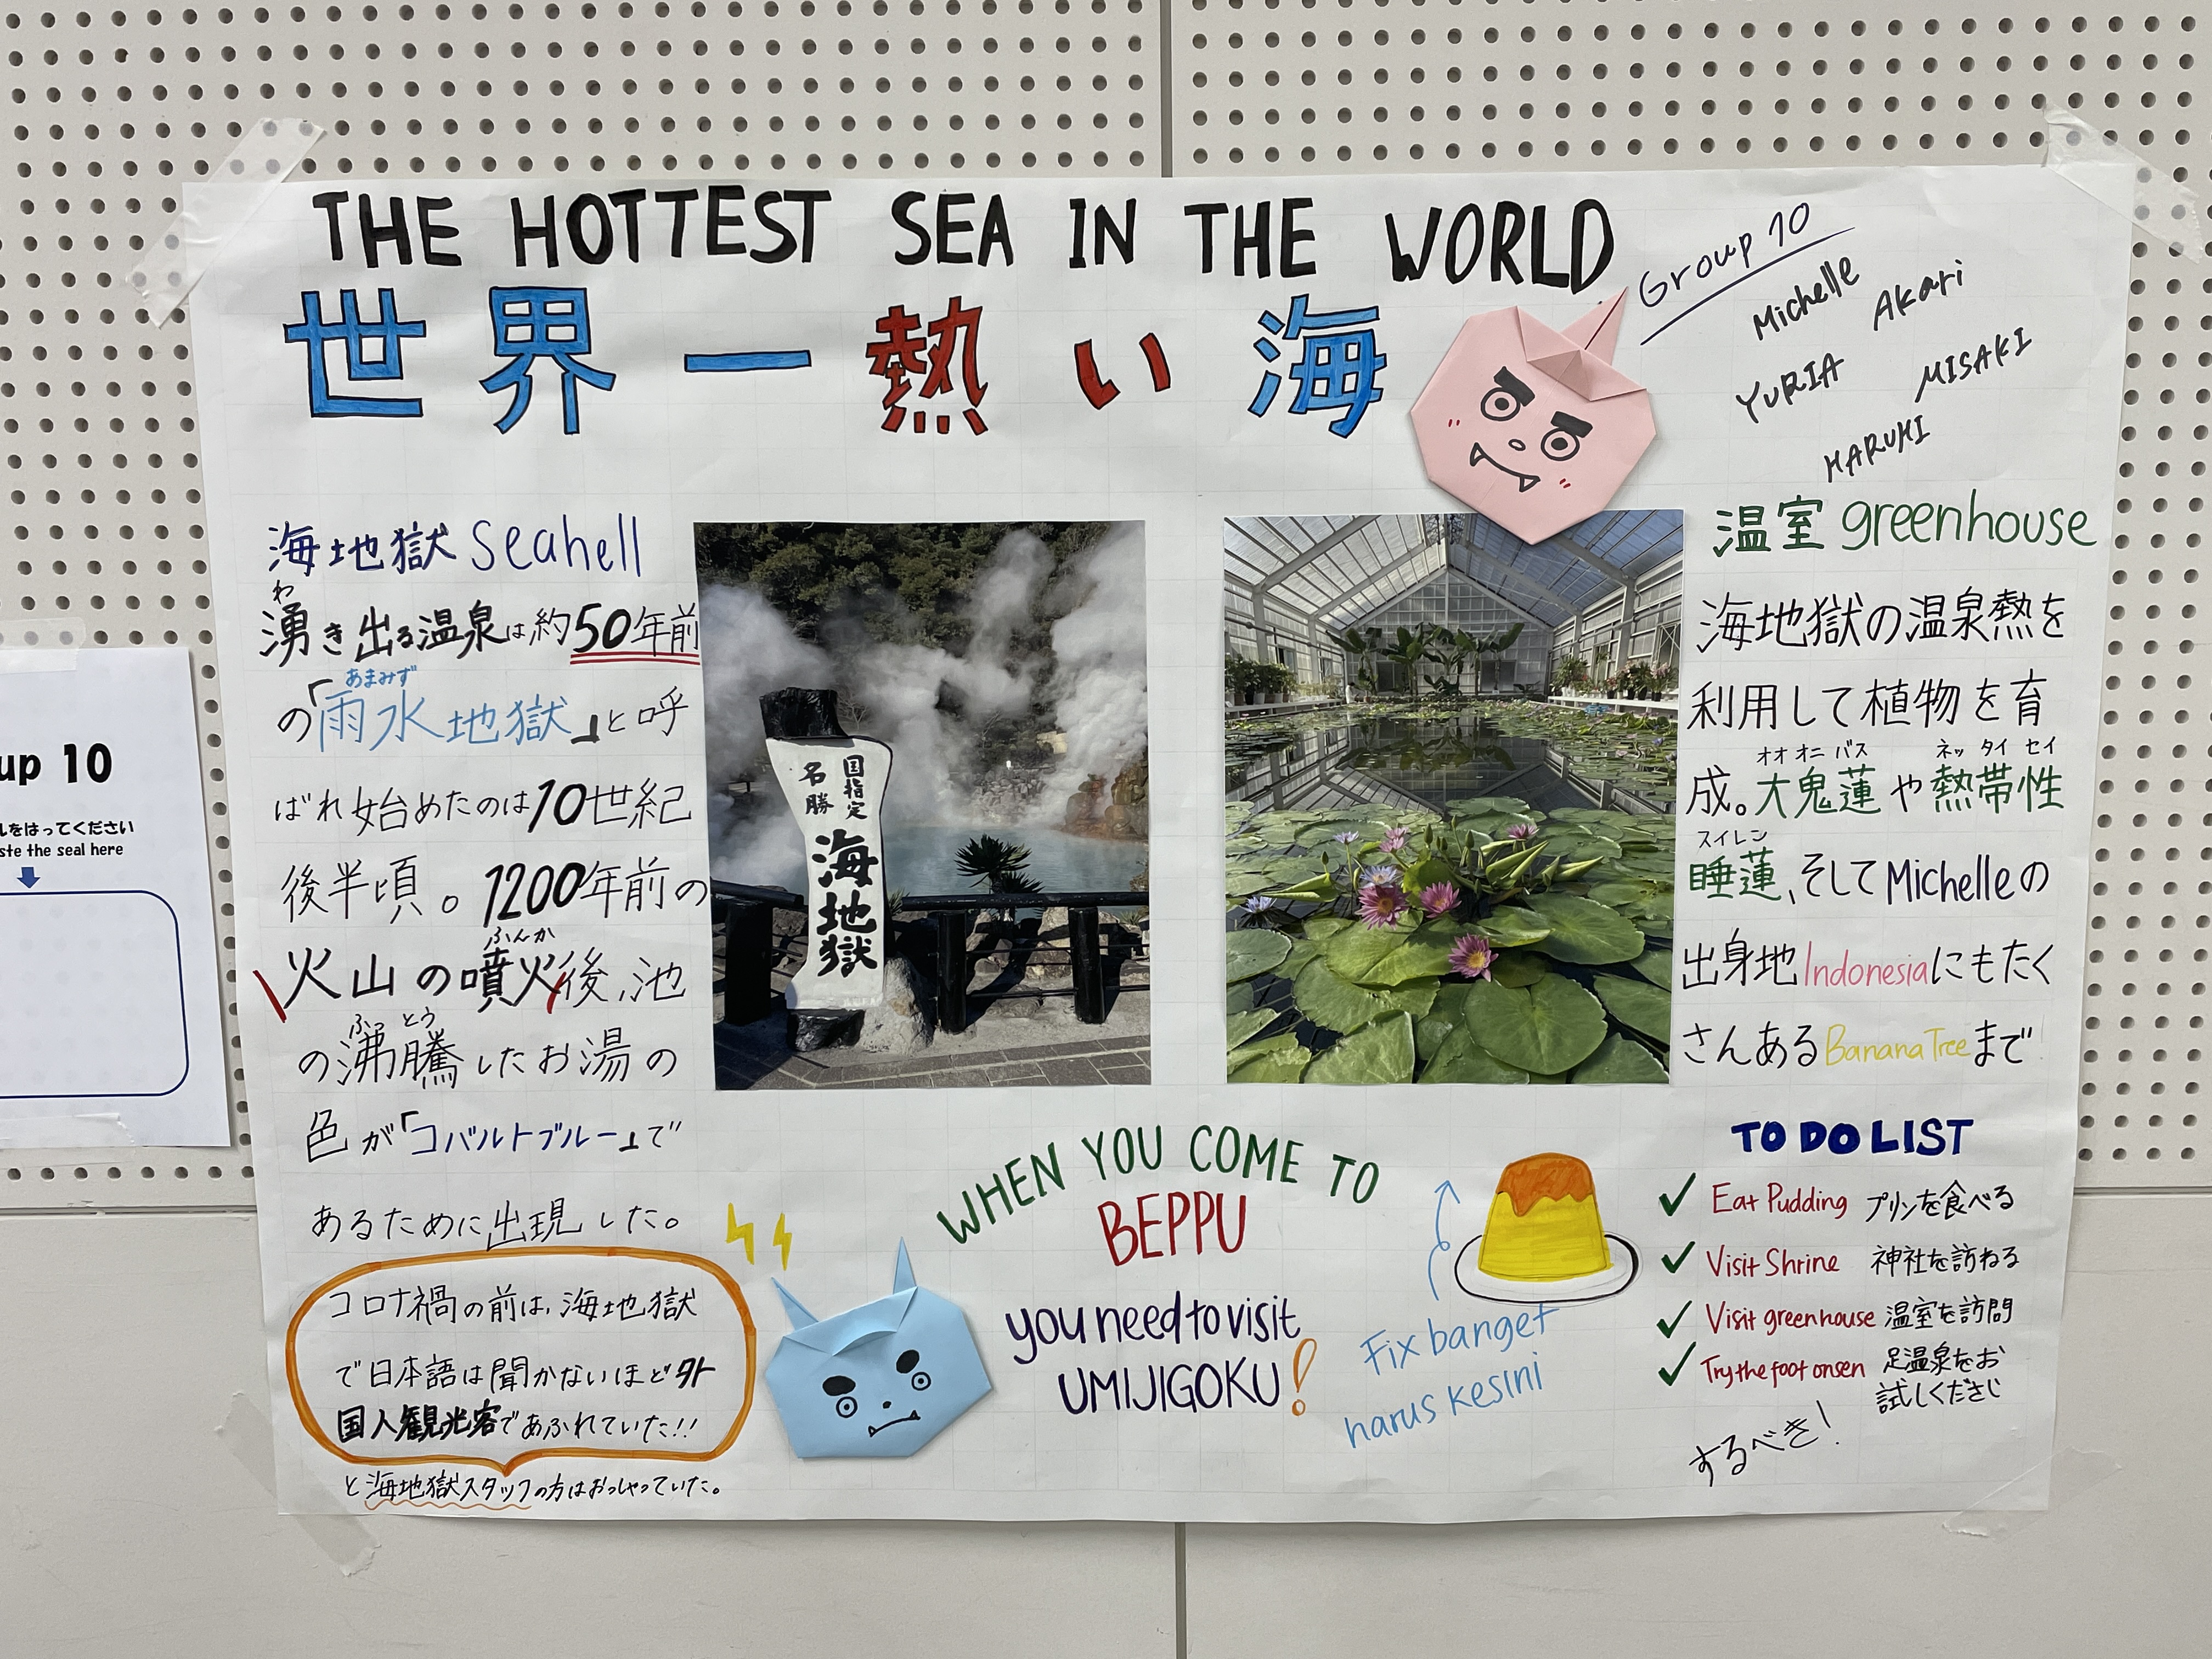 THE HOTTEST SEA IN THE WORLD
世界一熱い海
Group 10
Michelle
Akari
YURIA
MISAKI
HARUHI
海地獄 Seahell
わ
湧き出る温泉は約50年前
あまみず
の「雨水地獄」と呼
ばれ始めたのは10世紀
後半頃。1200年前の
ふんか
火山の噴火後、池
ふっとう
の沸騰したお湯の
色が「コバルトブルー」で
あるために出現した。
コロナ禍の前は、海地獄
で日本語は聞かないほど外
国人観光客であふれていた!!
と海地獄スタッフの方はおっしゃっていた。
国指定
名勝
海地獄
温室 greenhouse
海地獄の温泉熱を
利用して植物を育
オオオニバス ネッタイセイ
成。大鬼蓮や熱帯性
スイレン
睡蓮、そしてMichelleの
出身地Indonesiaにもたく
さんあるBanana Treeまで
WHEN YOU COME TO
BEPPU
you need to visit
UMIJIGOKU!
Fix banget
harus kesini
TO DO LIST
✓ Eat Pudding プリンを食べる
✓ Visit Shrine 神社を訪ねる
✓ Visit greenhouse 温室を訪問
✓ Try the foot onsen 足温泉をお
試しくださじ
するべき!
up 10
をはってください
ste the seal here